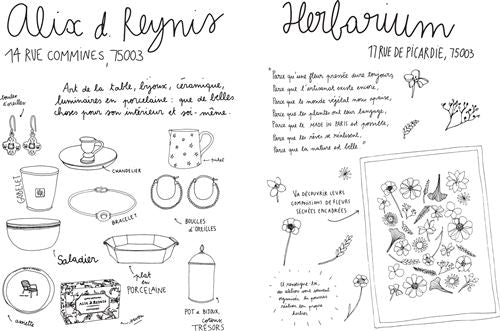 Alix d. Reynis
14 RUE COMMINES, 75003
Art de la table, bijoux, céramique,
luminaires en porcelaine : que de belles
choses pour son intérieur et soi-même.
boucles
d'oreilles
CHANDELIER
GOBELET
BRACELET
BOUCLES
D'OREILLES
Saladier
plat
en
PORCELAINE
ALIX D. REYNIS
assiette
POT à BIJOUX,
cotons,
TRÉSORS
Herbarium
17 RUE DE PICARDIE, 75003
"Parce qu'une fleur pressée dure toujours
Parce que l'artisanat existe encore,
Parce que le monde végétal nous apaise,
Parce que les plantes ont leur langage,
Parce que le MADE IN PARIS est possible,
Parce que les rêves se réalisent,
Parce que la nature est belle."
VA DÉCOUVRIR LEURS
COMPOSITIONS DE FLEURS
SÉCHÉES ENCADRÉES
Et renseigne-toi,
des ateliers sont souvent
organisés. Tu pourras
réaliser ton propre
herbier